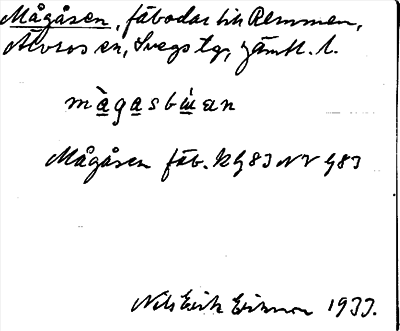 Mågåsen, fäbodar till Remmen,
Älvros sn, Svegs tg, Jämtl. l.
màgasbúan
Mågåsen fäb. KG83 NV G83
Nils Erik Eriksson 1933.